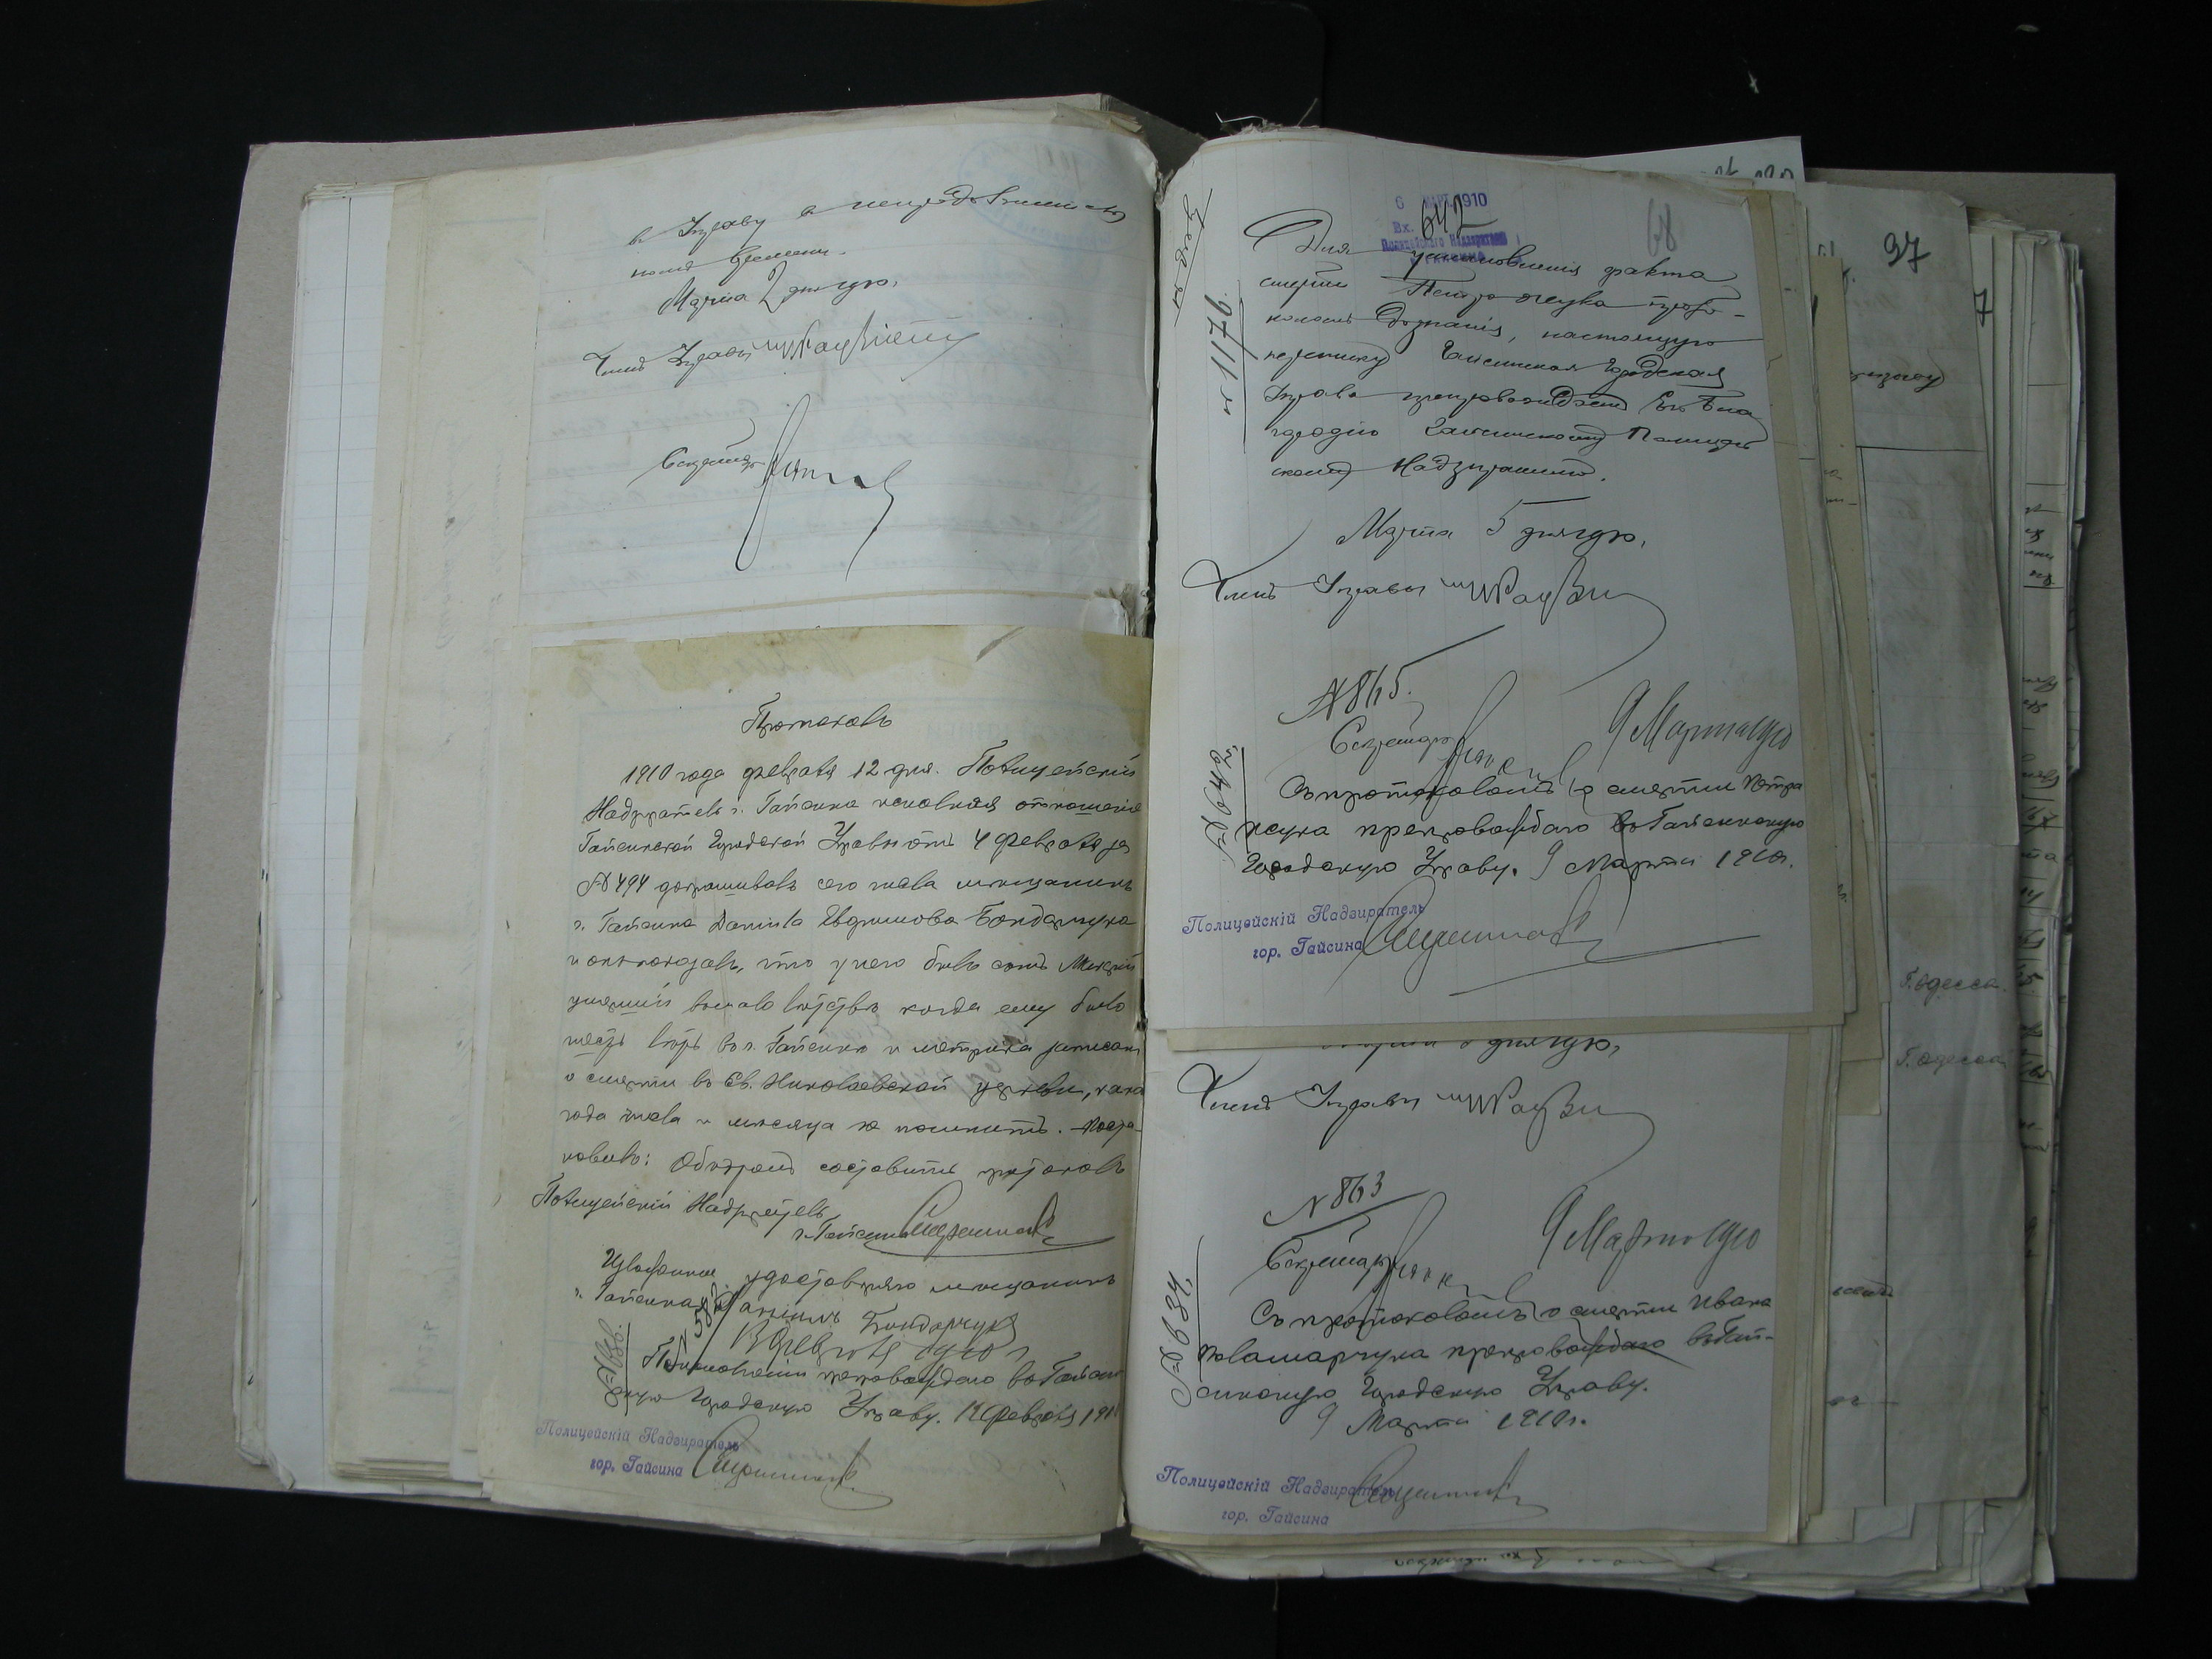 в Управу в непродолжительн
номъ времени.
Марта 2 дня 1910 г.
Членъ Управы
Секретарь
Протоколъ
1910 года февраля 12 дня. Полицейскій
Надзиратель г. Гайсина исполняя отношеніе
Гайсинской Городской Управы отъ 4 февраля за
№ 494 допрашивалъ сего числа мѣщанина
г. Гайсина Данила Евдокимова Бондарчука
и онъ показалъ, что у него былъ сынъ
умершій когда ему было
шесть лѣтъ въ г. Гайсинѣ и метрика записана
о смерти въ Св. Николаевской церкви, какого
года числа и мѣсяца не помнитъ. Поста-
новилъ: Объ этомъ составить протоколъ
Полицейскій Надзиратель
г. Гайсина
Изложенное удостовѣряю мѣщанинъ
г. Гайсина Даніилъ Бондарчукъ
№ 583
12 Февраля 1910 г
По исполненіи препровождаю въ Гайсин
скую Городскую Управу. 12 Февраля 1910
Полицейскій Надзиратель
гор. Гайсина
6 МАРТ 1910
Вх. 642
Полицейскаго Надзирателя
68
№ 1176
Для установленія факта
смерти Петра Жука прото-
коломъ дознанія, настоящую
переписку Гайсинская Городская
Управа препровождаетъ Его Бла
городію Гайсинскому Полицей
скому Надзирателю.
Марта 5 дня 1910 г.
Членъ Управы
№ 865.
Секретарь
9 Марта 1910
№ 642
Съ протоколомъ о смерти Петра
Жука препровождаю въ Гайсинскую
Городскую Управу. 9 Марта 1910 г.
Полицейскій Надзиратель
гор. Гайсина
дня 1910,
Членъ Управы
№ 863
Секретарь
9 Марта 1910
№ 637
Съ протоколомъ о смерти Ивана
Паламарчука препровождаю въ Гай-
синскую Городскую Управу.
9 Марта 1910 г.
Полицейскій Надзиратель
гор. Гайсина
97
7
Г. Одесса.
Г. Одесса